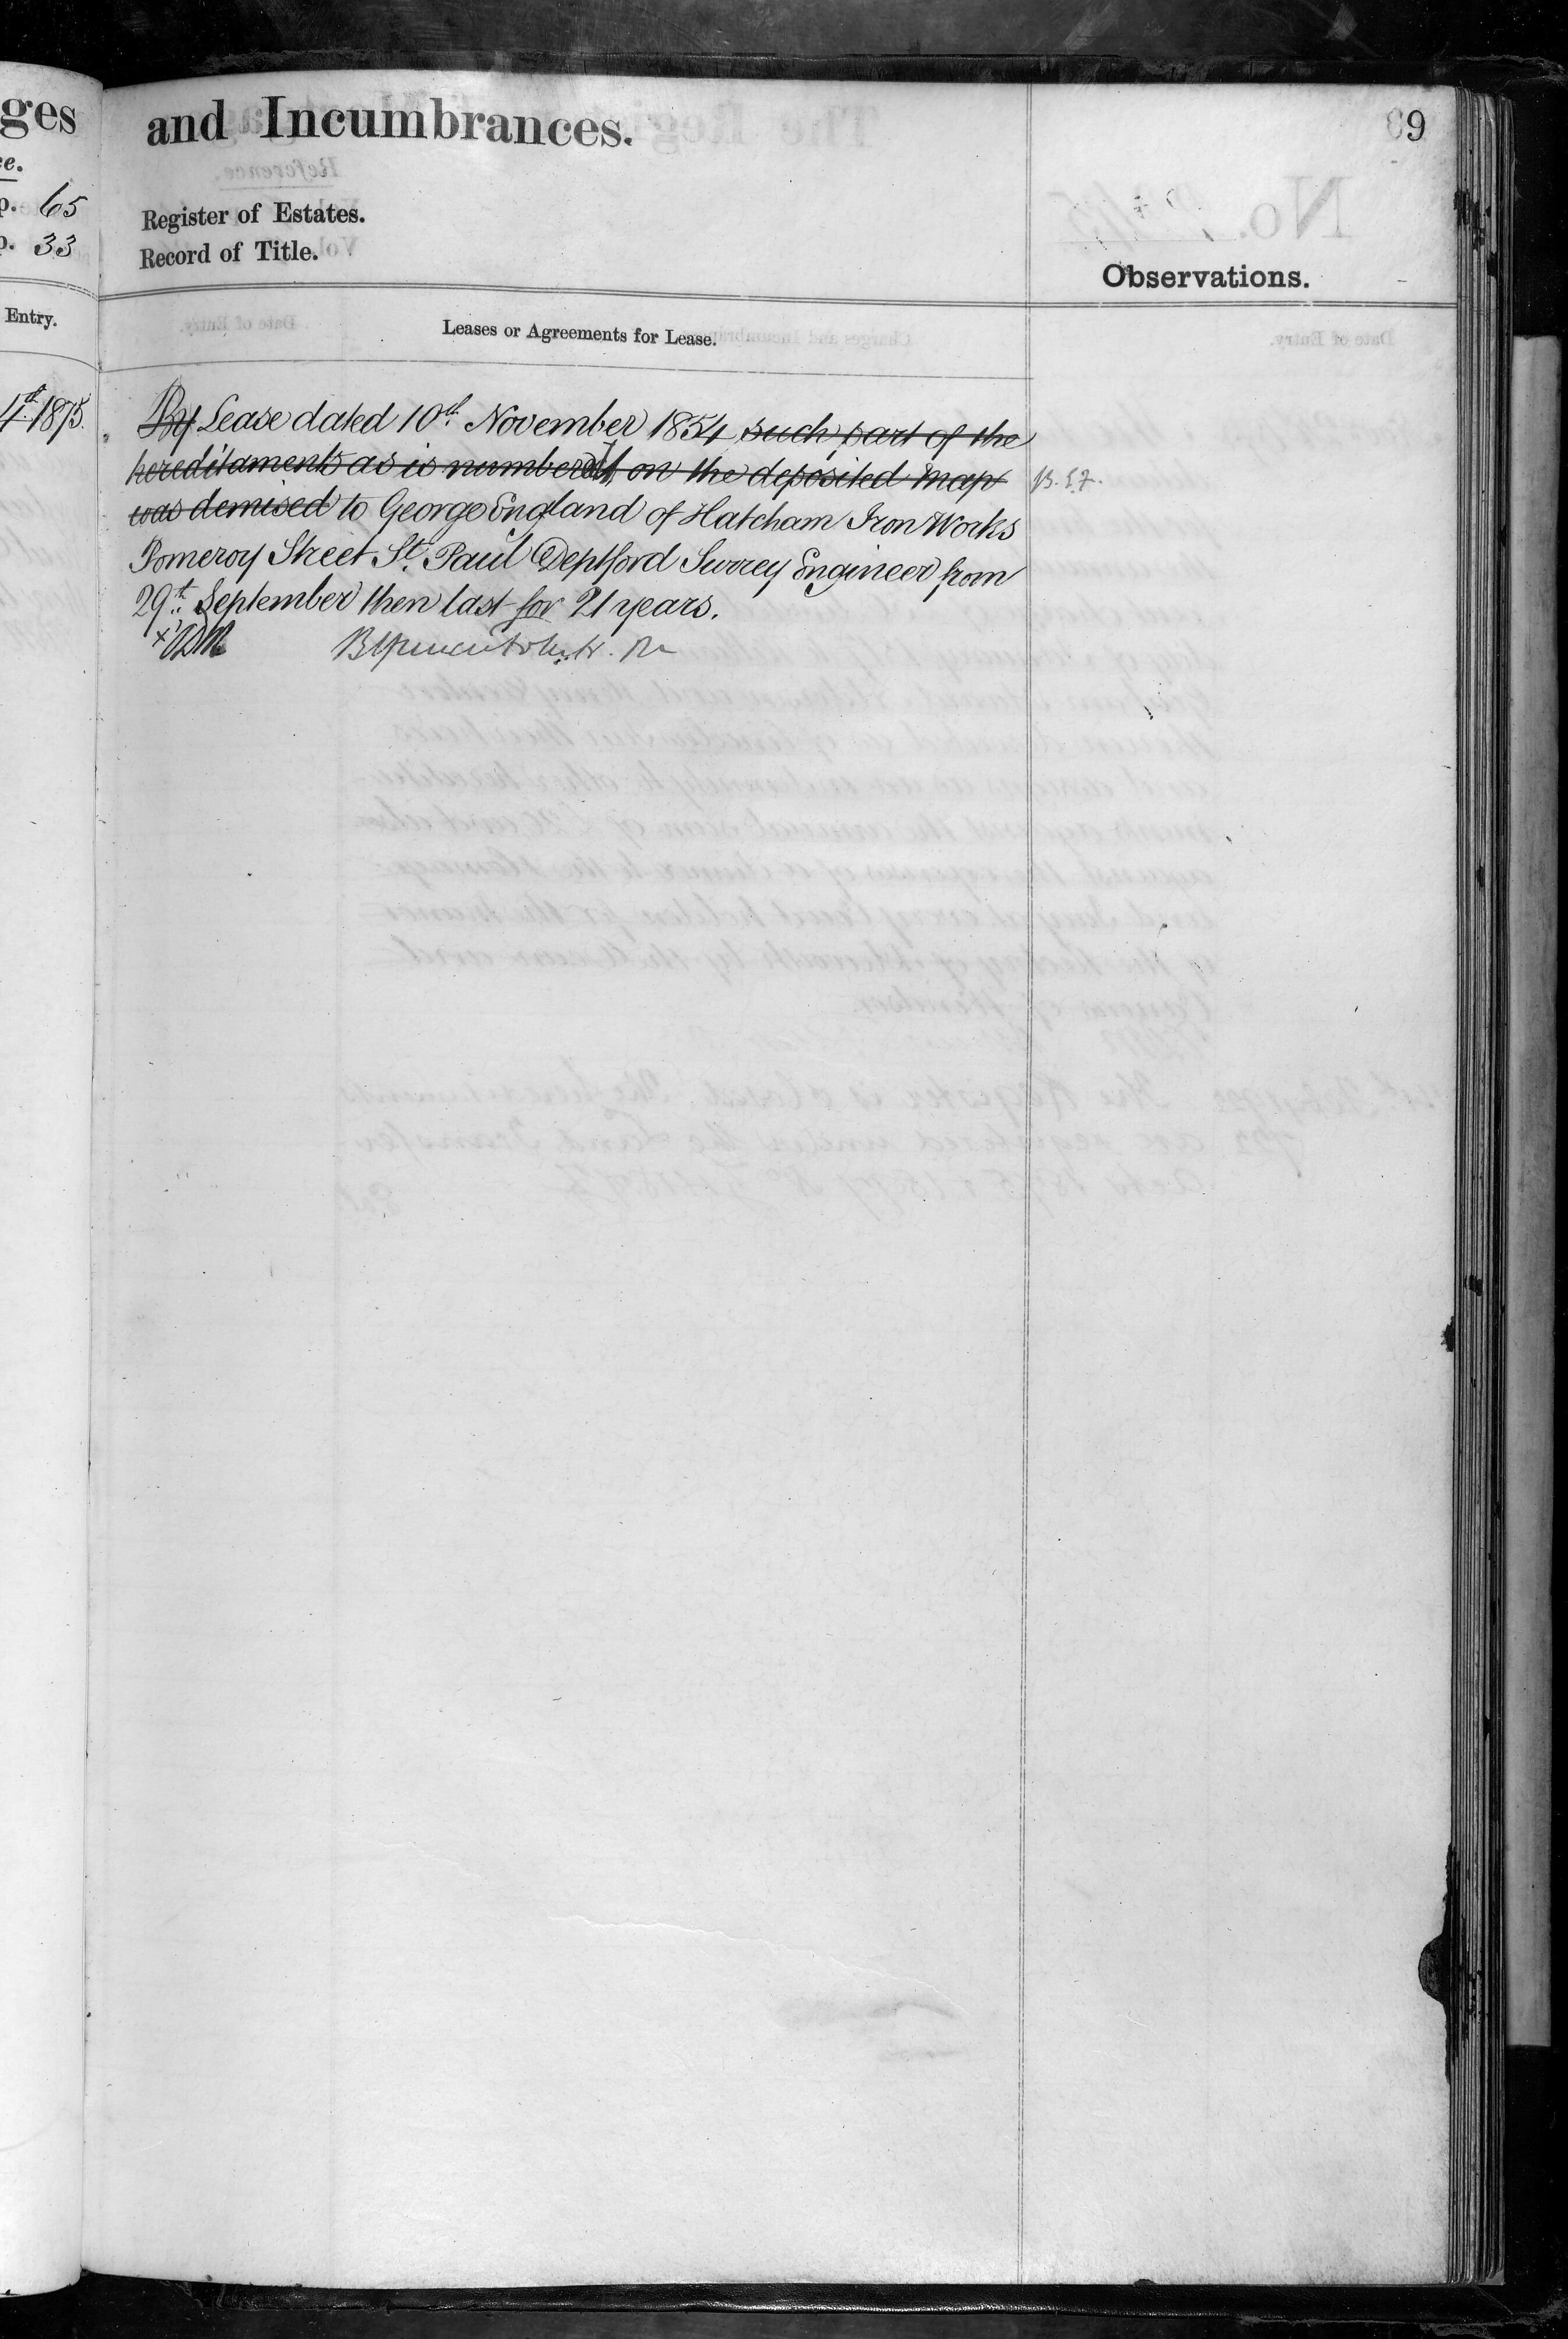 ges
and Incumbrances.
69
p. 65
Register of Estates.
p. 33
Record of Title.
Observations.
Entry.
Leases or Agreements for Lease.
4th 1875.
By Lease dated 10th November 1854 such part of the
hereditaments as is numbered on the deposited map
was demised to George England of Hatcham Iron Works
Pomeroy Street St. Paul Deptford Surrey Engineer from
29th September then last for 21 years.